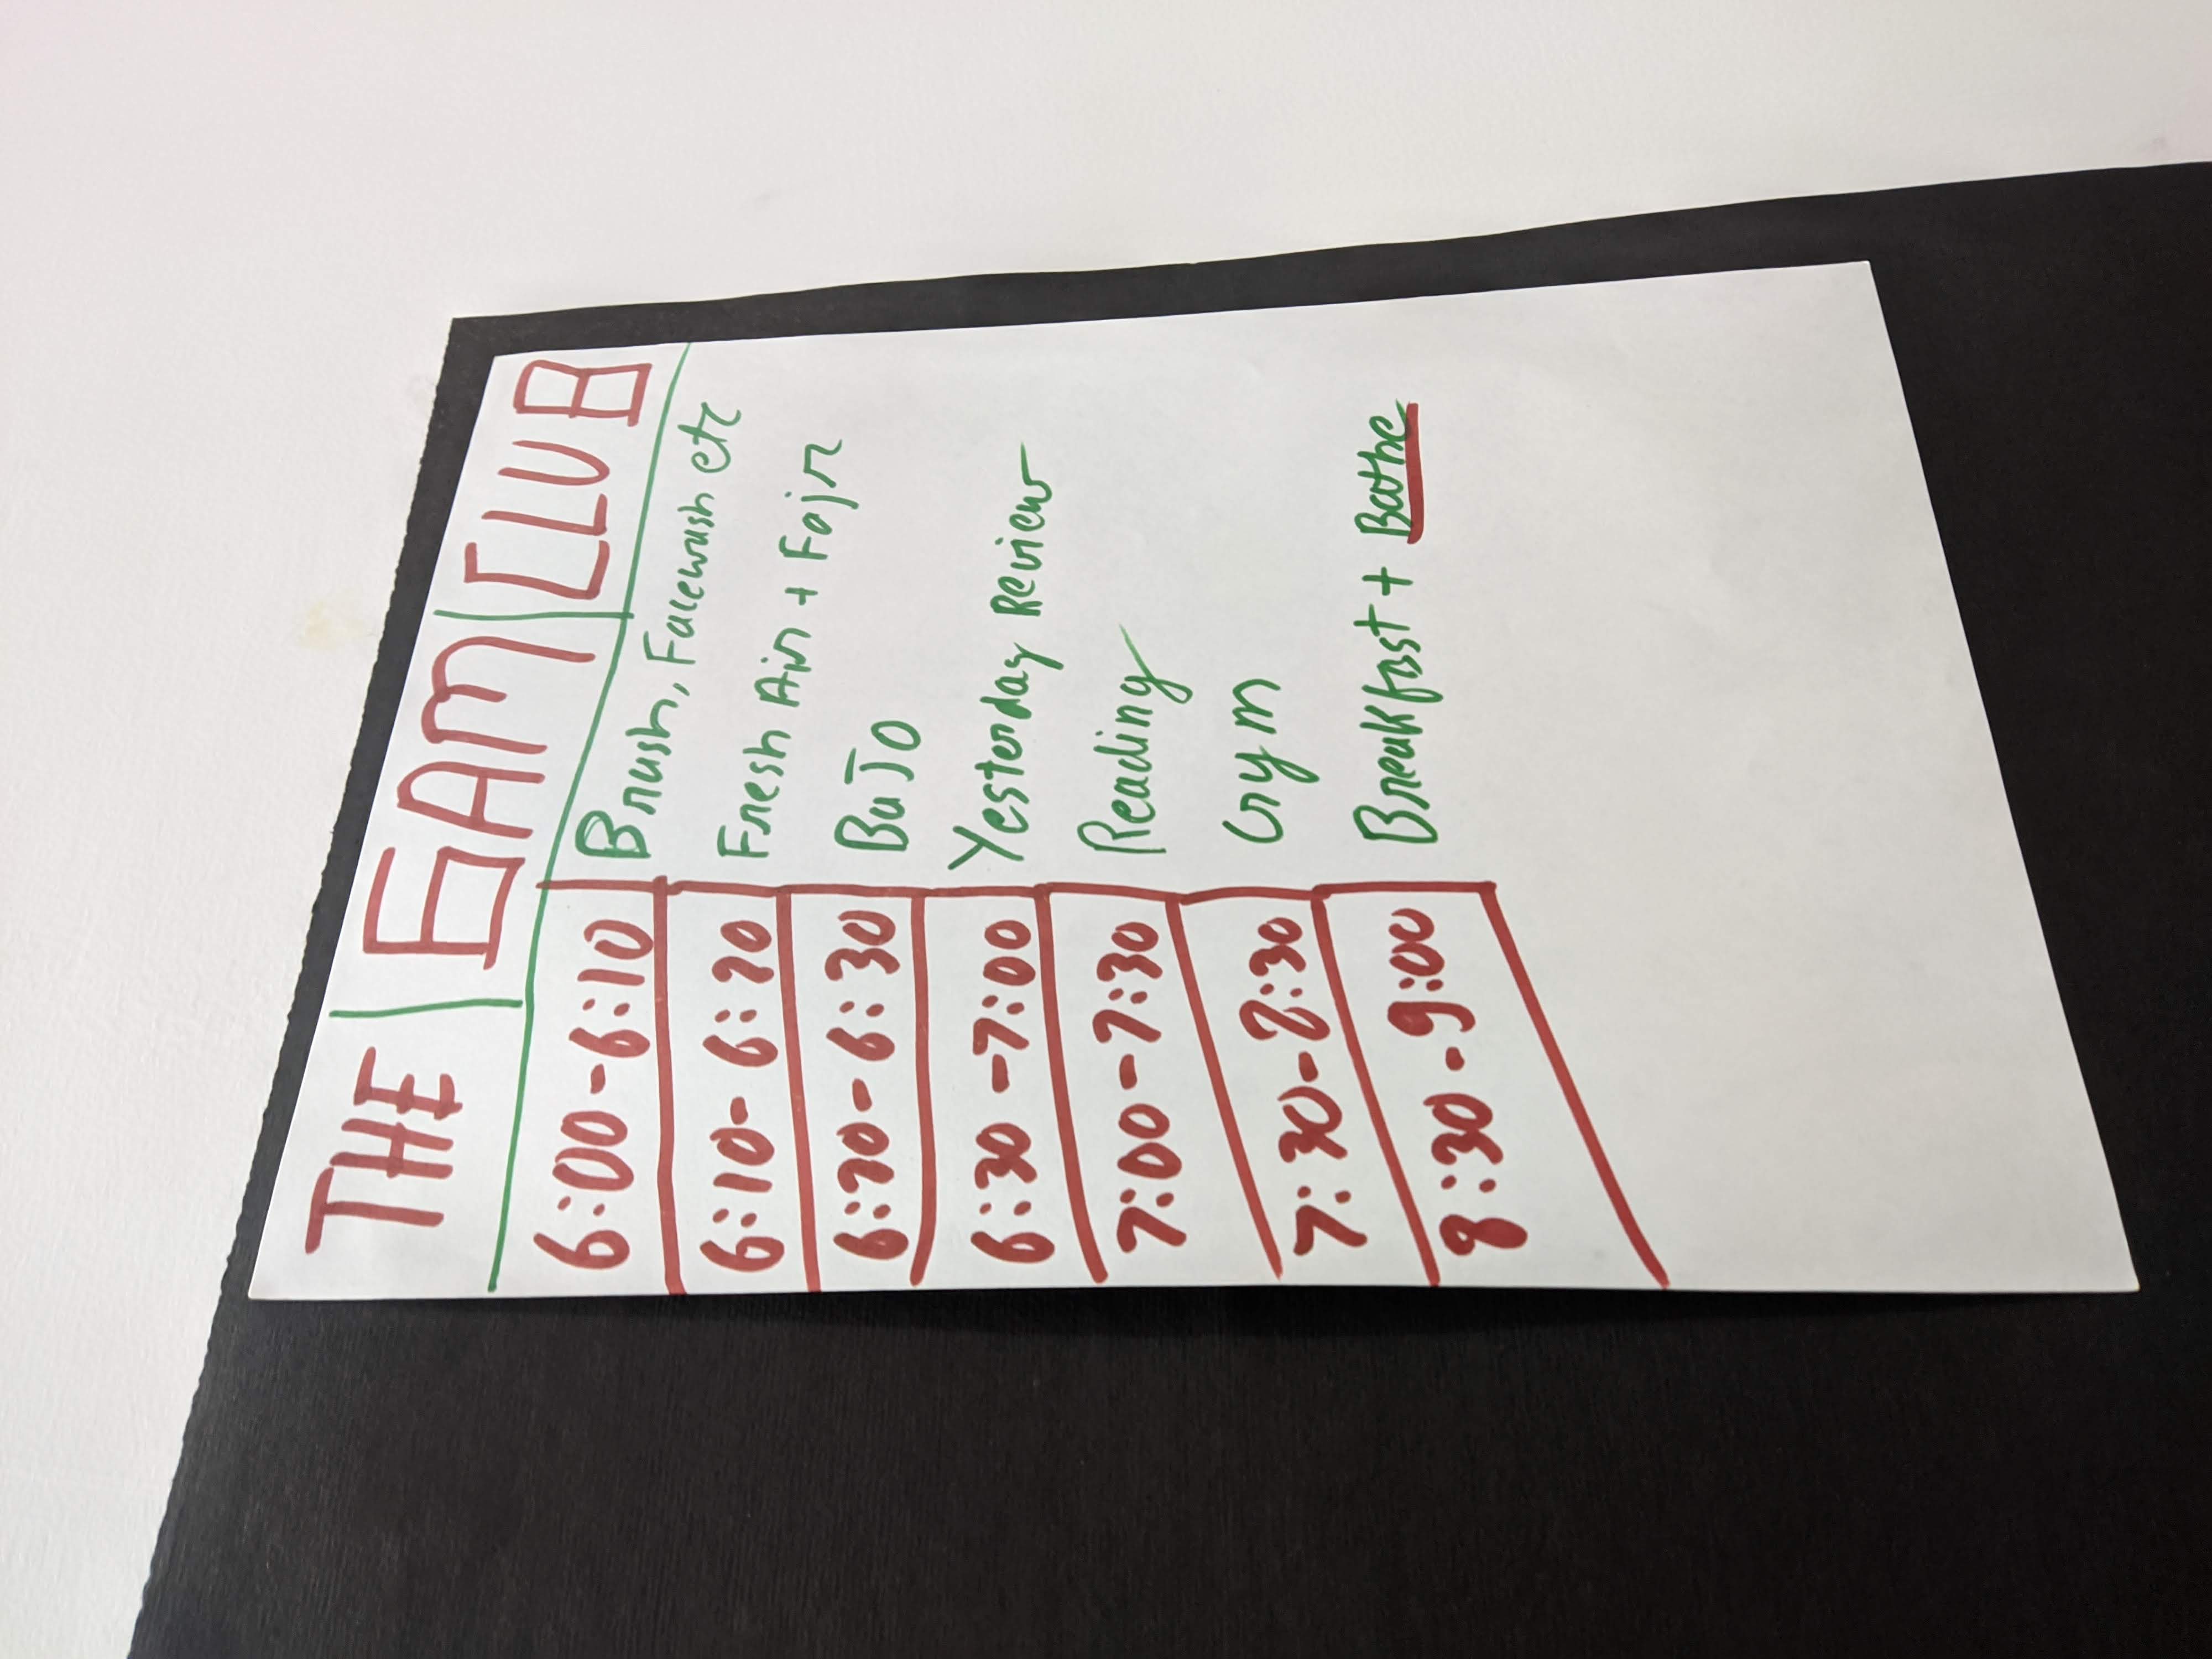 THE 6AM CLUB
6:00-6:10 Brush, Facewash etc
6:10-6:20 Fresh Air + Fajr
6:20-6:30 BuJo
6:30-7:00 Yesterday Review
7:00-7:30 Reading
7:30-8:30 Gym
8:30-9:00 Breakfast + Bathe